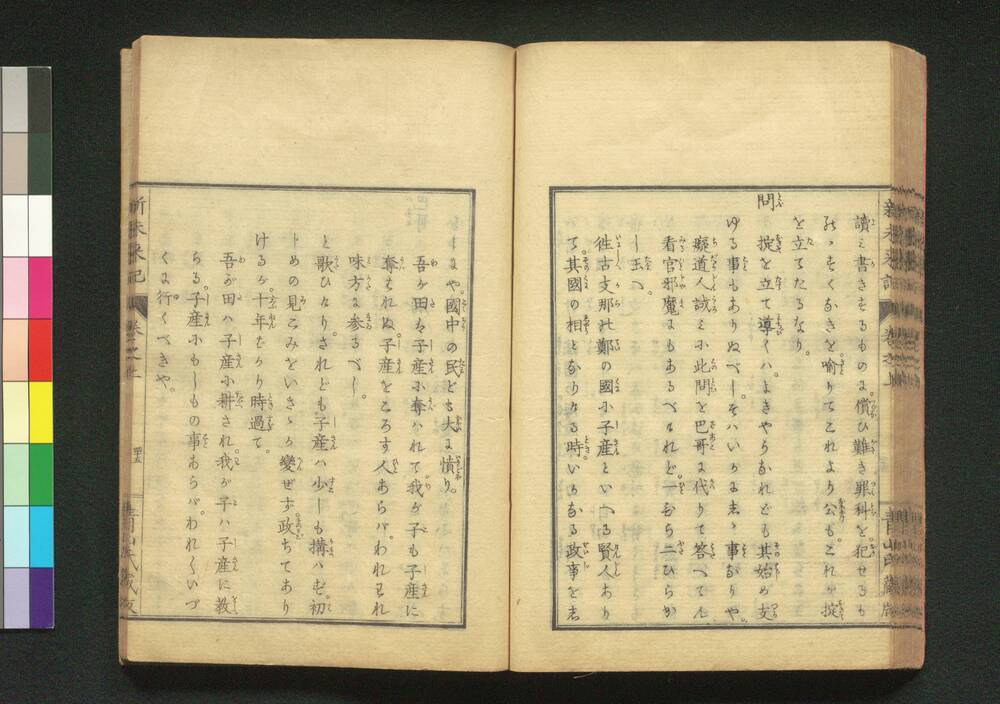 讀み書きせるものは。償ひ難き罪科を。犯せるも
のゝ
を立てたるなり。
問 掟を立て導くハ。よきやうなれども其始め支
ゆる事もありぬべし。そハいかに志ゝ事なりや。
癡道人誠みに此問を巴哥に代りて答へてん。
看官邪魔にもあるべけれど。一むら二ひらか
し玉へ。
徃古支那の鄭の國に子産といへる賢人あり
て。其國の相となりたる時。いかなる政事を志
しにや。國中の民ども大に憤り。
吾が田も子産に奪ハれて我が子も子産に
奪ハれぬ。子産をころす人あらバ。われもわれ
味方に参るべし。
と歌ひたり。されども子産ハ少しも搆ハず。初
しめの見こみをいさゝか變ぜず。政ちてあり
けるが。十年をかり時過て。
吾が田ハ子産に耕され。我が子ハ子産に教
らる。子産にもしもの事あらバ。われ〳〵いづ
くに行くべきや。
新未来記 巻之上 四十五 青山氏蔵版
新未来記 巻之上 青山氏蔵版